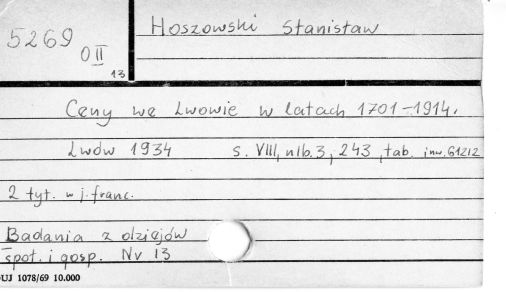 5269
O II
13
Hoszowski Stanisław
Ceny we Lwowie w latach 1701-1914.
Lwów 1934 s. VIII, nlb. 3, 243, tab. inw. 61212
2 tyt. w j. franc.
Badania z dziejów
społ. i gosp. Nr 13
UJ 1078/69 10.000